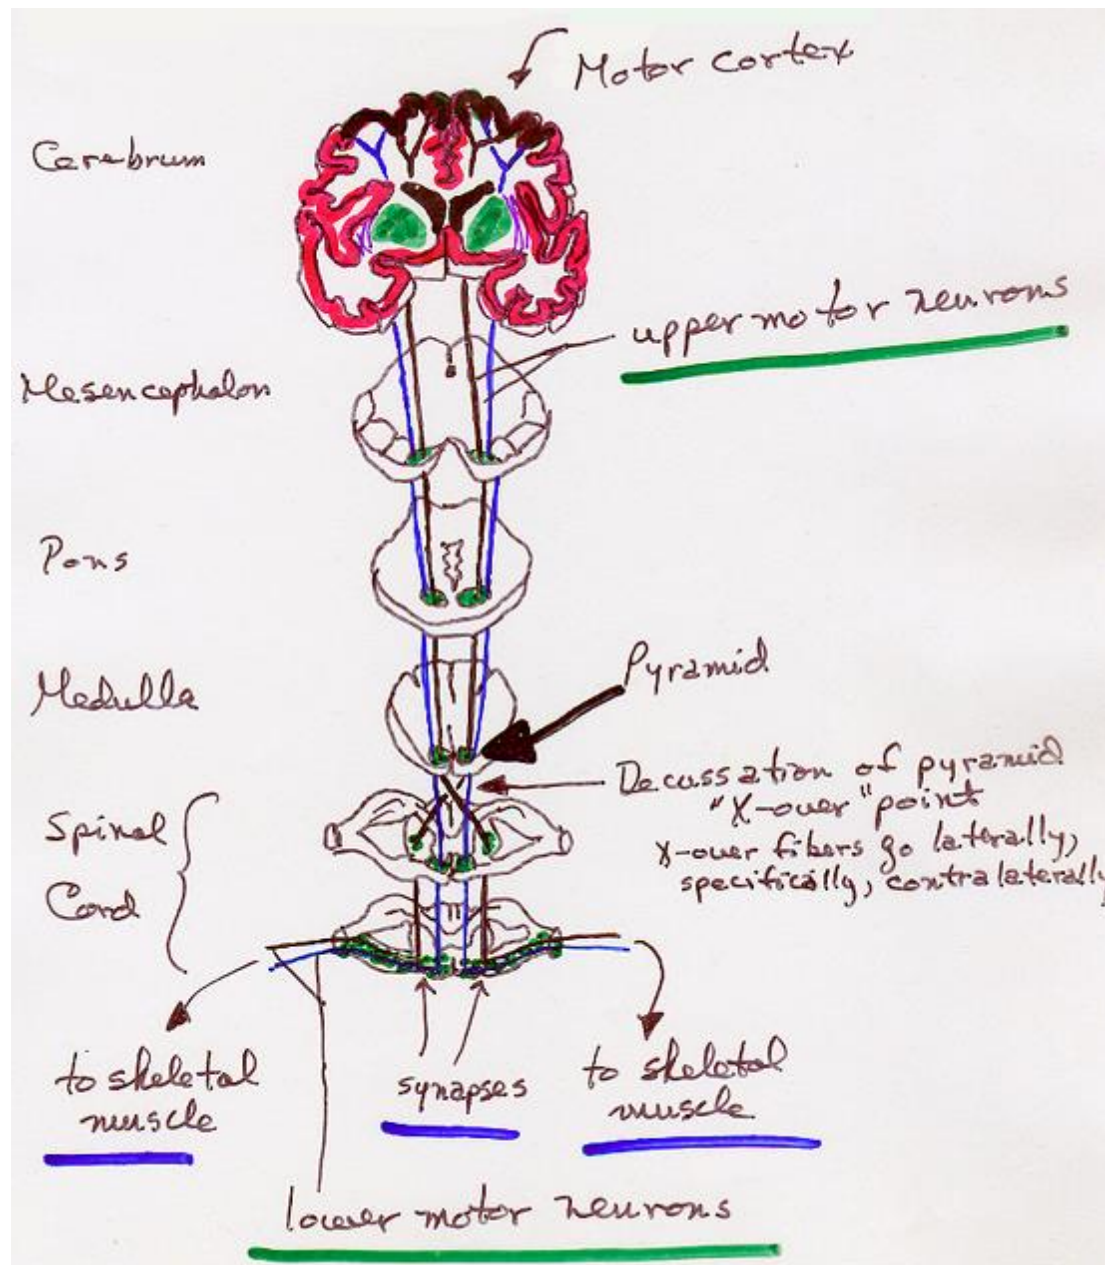 Motor cortex
Cerebrum
upper motor neurons
Mesencephalon
Pons
Pyramid
Medulla
Decussation of pyramid
"X-over" point
X-over fibers go laterally,
specifically, contralaterally
Spinal
Cord
to skeletal
muscle
synapses
to skeletal
muscle
lower motor neurons